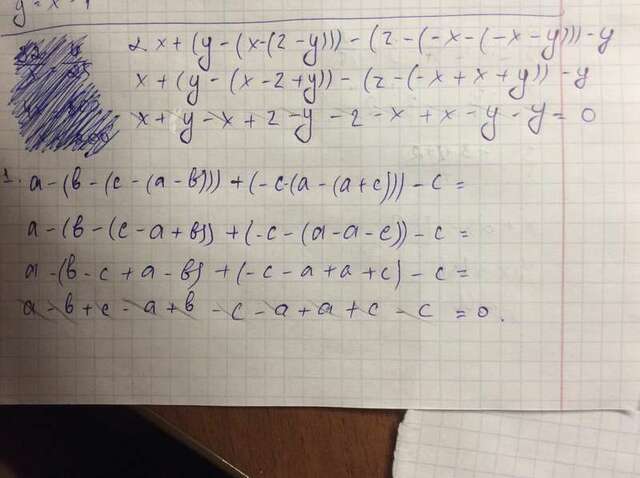 y = x - 1
2. x + (y - (x - (2 - y))) - (2 - (-x - (-x - y))) - y
x + (y - (x - 2 + y)) - (2 - (-x + x + y)) - y
x + y - x + 2 - y - 2 - x + x - y - y = 0
1. a - (в - (c - (a - в))) + (-c - (a - (a + c))) - c =
a - (в - (c - a + в)) + (-c - (a - a - c)) - c =
a - (в - c + a - в) + (-c - a + a + c) - c =
a - в + c - a + в - c - a + a + c - c = 0.